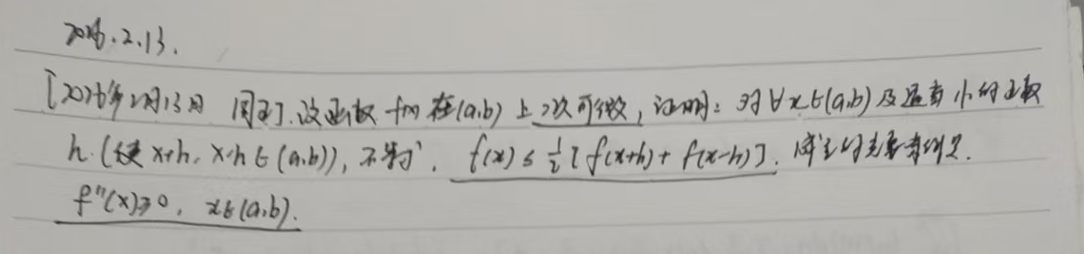 2026.2.13.
[2026年2月13日 周五]. 设函数 f(x) 在(a,b) 上二次可微, 证明: 对∀x∈(a,b) 及适当小的正数
h. (使 x+h, x-h∈(a,b)), 不等式, f(x) ≤ 1/2 [f(x+h)+f(x-h)]. 成立的充要条件是.
f''(x)≥0, x∈(a,b).